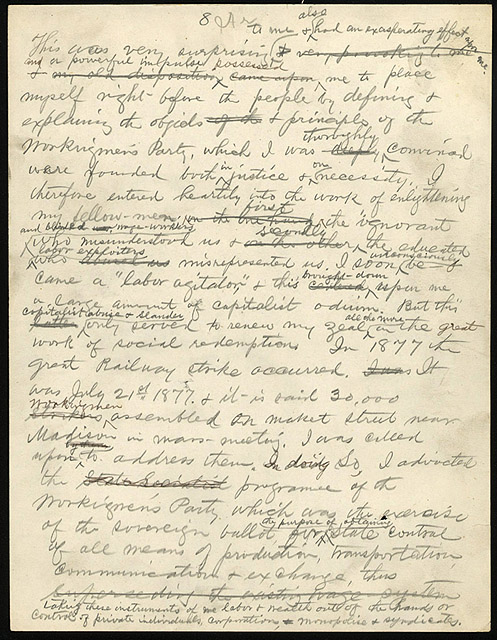 8
to me & also had an exasperating effect upon me.
This was very surprising & very provoking to me
and a powerful impulse possessed
& my old disposition came upon me to place
myself right before the people by defining &
explaining the objects of the & principles of the
thoroughly
Workingmen's Party, which I was deeply convinced
were founded both in justice & on necessity. I
therefore entered heartily into the work of enlightening
my fellow-men, on the one hand first the ignorant
and wage-workers
who misunderstood us & on the other secondly the educated
labor exploiters
who misrepresented us. I soon unconsciously be
came a "labor agitator" & this brought down upon me
a large amount of capitalist odium. But this
capitalist abuse & slander
latter only served to renew my zeal all the more in the great
work of social redemption. In 1877 the
great Railway strike occurred. It was It
was July 21st 1877. & it is said 30,000
Workingmen
assembled on market street near
Madison in mass-meeting. I was called
upon to address them. In doing so, I advocated
the State Socialist programme of the
Workigmen's Party, which was the exercise
of the sovereign ballot for the purpose of obtaining State control
of all means of production, transportation,
communication & exchange, thus
superseding the existing wage system
taking these instruments of labor & wealth out of the hands or
control of private individuals, corporations monopolies & syndicates.